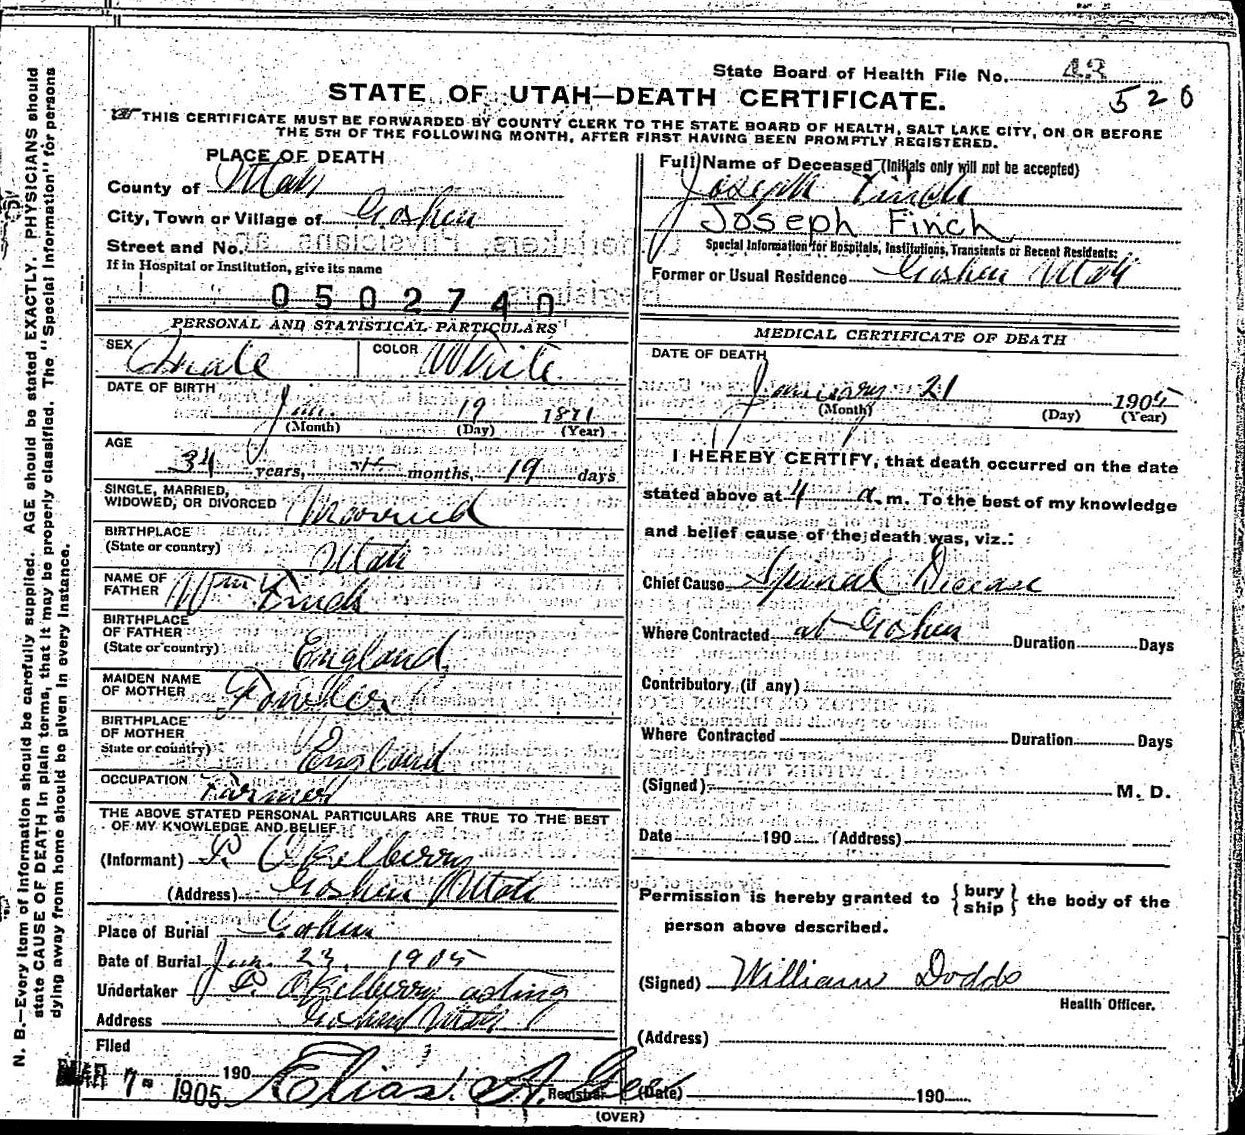 State Board of Health File No. 43
520
STATE OF UTAH—DEATH CERTIFICATE.
THIS CERTIFICATE MUST BE FORWARDED BY COUNTY CLERK TO THE STATE BOARD OF HEALTH, SALT LAKE CITY, ON OR BEFORE
THE 5TH OF THE FOLLOWING MONTH, AFTER FIRST HAVING BEEN PROMPTLY REGISTERED.
PLACE OF DEATH
County of Utah
City, Town or Village of Goshen
Street and No.
If in Hospital or Institution, give its name
0502740
Full Name of Deceased (Initials only will not be accepted)
Joseph Finch
Joseph Finch
Special Information for Hospitals, Institutions, Transients or Recent Residents:
Former or Usual Residence Goshen Utah
PERSONAL AND STATISTICAL PARTICULARS
SEX Male COLOR White
DATE OF BIRTH
Jan. 19 1871
(Month) (Day) (Year)
AGE
34 years, months, 19 days
SINGLE, MARRIED,
WIDOWED, OR DIVORCED Married
BIRTHPLACE
(State or country) Utah
NAME OF
FATHER Wm Finch
BIRTHPLACE
OF FATHER
(State or country) England
MAIDEN NAME
OF MOTHER Fowler
BIRTHPLACE
OF MOTHER
State or country) England
OCCUPATION Farmer
THE ABOVE STATED PERSONAL PARTICULARS ARE TRUE TO THE BEST
OF MY KNOWLEDGE AND BELIEF.
(Informant) P. Okelberry
(Address) Goshen Utah
Place of Burial Goshen
Date of Burial Jan. 23, 1905
Undertaker P. Okelberry acting
Address Goshen Utah
Filed
MAR 7 1905 190 Elias A. Gee Registrar
MEDICAL CERTIFICATE OF DEATH
DATE OF DEATH
January 21 1905
(Month) (Day) (Year)
I HEREBY CERTIFY, that death occurred on the date
stated above at 4 a.m. To the best of my knowledge
and belief cause of the death was, viz.:
Chief Cause Spinal Disease
Where Contracted at Goshen Duration Days
Contributory (if any)
Where Contracted Duration Days
(Signed) M. D.
Date 190 (Address)
Permission is hereby granted to {bury ship} the body of the
person above described.
(Signed) William Dodds
Health Officer.
(Address)
(Date) 190
(OVER)
N. B.—Every item of information should be carefully supplied. AGE should be stated EXACTLY. PHYSICIANS should
state CAUSE OF DEATH in plain terms, that it may be properly classified. The "Special Information" for persons
dying away from home should be given in every instance.